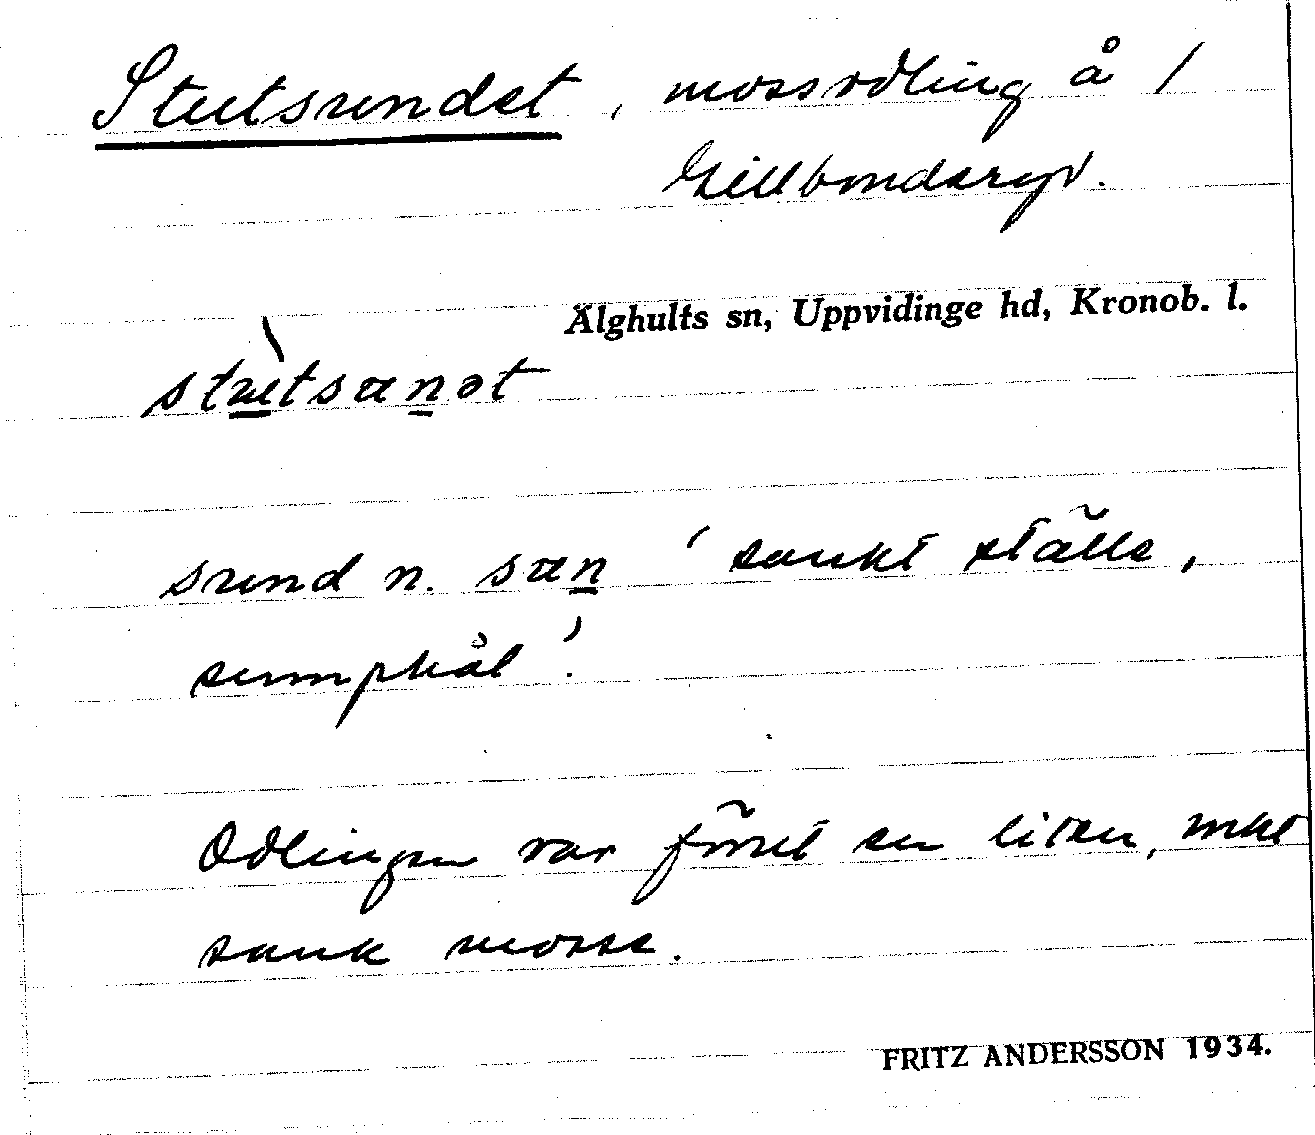 Stutsundet, mossodling å 1
Lillbonderyd.
Älghults sn, Uppvidinge hd, Kronob. l.
stù̲tsɷn̲ət
sund n. sɷn̲ 'sankt ställe,
sumphål'.
Odlingen var förut en liten, mkt
sank mosse.
FRITZ ANDERSSON 1934.